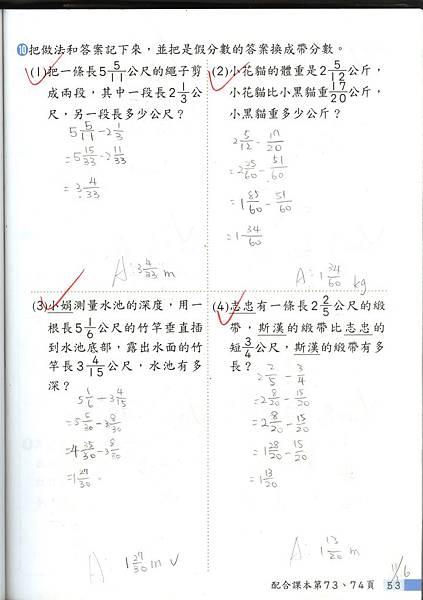 ⑩把做法和答案記下來，並把是假分數的答案換成帶分數。
(1)把一條長5 5/11公尺的繩子剪
成兩段，其中一段長2 1/3公
尺，另一段長多少公尺？
5 5/11 - 2 1/3
= 5 15/33 - 2 11/33
= 3 4/33
A: 3 4/33 m
(2)小花貓的體重是2 5/12公斤，
小花貓比小黑貓重17/20公斤，
小黑貓重多少公斤？
2 5/12 - 17/20
= 2 25/60 - 51/60
= 1 85/60 - 51/60
= 1 34/60
A: 1 34/60 kg
(3)小娟測量水池的深度，用一
根長5 1/6公尺的竹竿垂直插
到水池底部，露出水面的竹
竿長3 4/15公尺，水池有多
深？
5 1/6 - 3 4/15
= 5 5/30 - 3 8/30
= 4 35/30 - 3 8/30
= 1 27/30
A: 1 27/30 m
(4)志忠有一條長2 2/5公尺的緞
帶，斯漢的緞帶比志忠的
短3/4公尺，斯漢的緞帶有多
長？
2 2/5 - 3/4
= 2 8/20 - 15/20
= 2 8/20 - 15/20
= 1 28/20 - 15/20
= 1 13/20
A: 1 13/20 m
11/6
配合課本第73、74頁 53